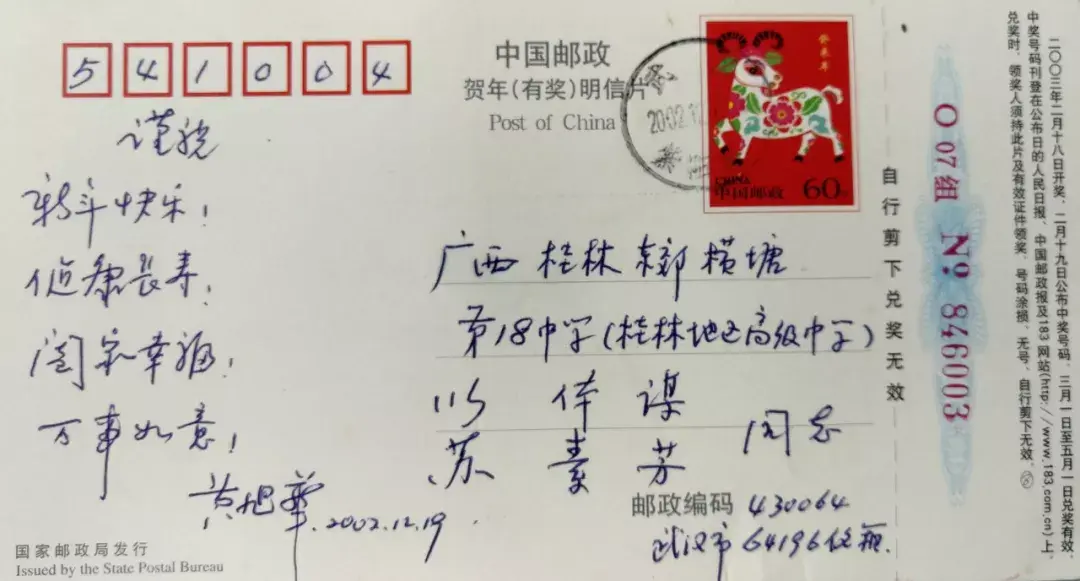 541004
中国邮政
贺年(有奖)明信片
Post of China
2002.12
癸未年
CHINA
中国邮政 60
谨祝
新年快乐!
健康长寿!
阖家幸福!
万事如意!
黄旭华 2002.12.19
广西 桂林 东郊 横塘
第18中学(桂林地区高级中学)
伟谋
苏素芳 同志
邮政编码 430064
武汉市 64196信箱.
国家邮政局发行
Issued by the State Postal Bureau
自行剪下兑奖无效
O 07组 No 846003
二〇〇三年二月十八日开奖,二月十九日公布中奖号码,三月一日至五月一日兑奖有效,
中奖号码刊登在公布日的人民日报、中国邮政报及183网站(http://www.183.com.cn)上,
兑奖时,领奖人须持此片及有效证件领奖,号码涂损、无号、自行剪下无效。